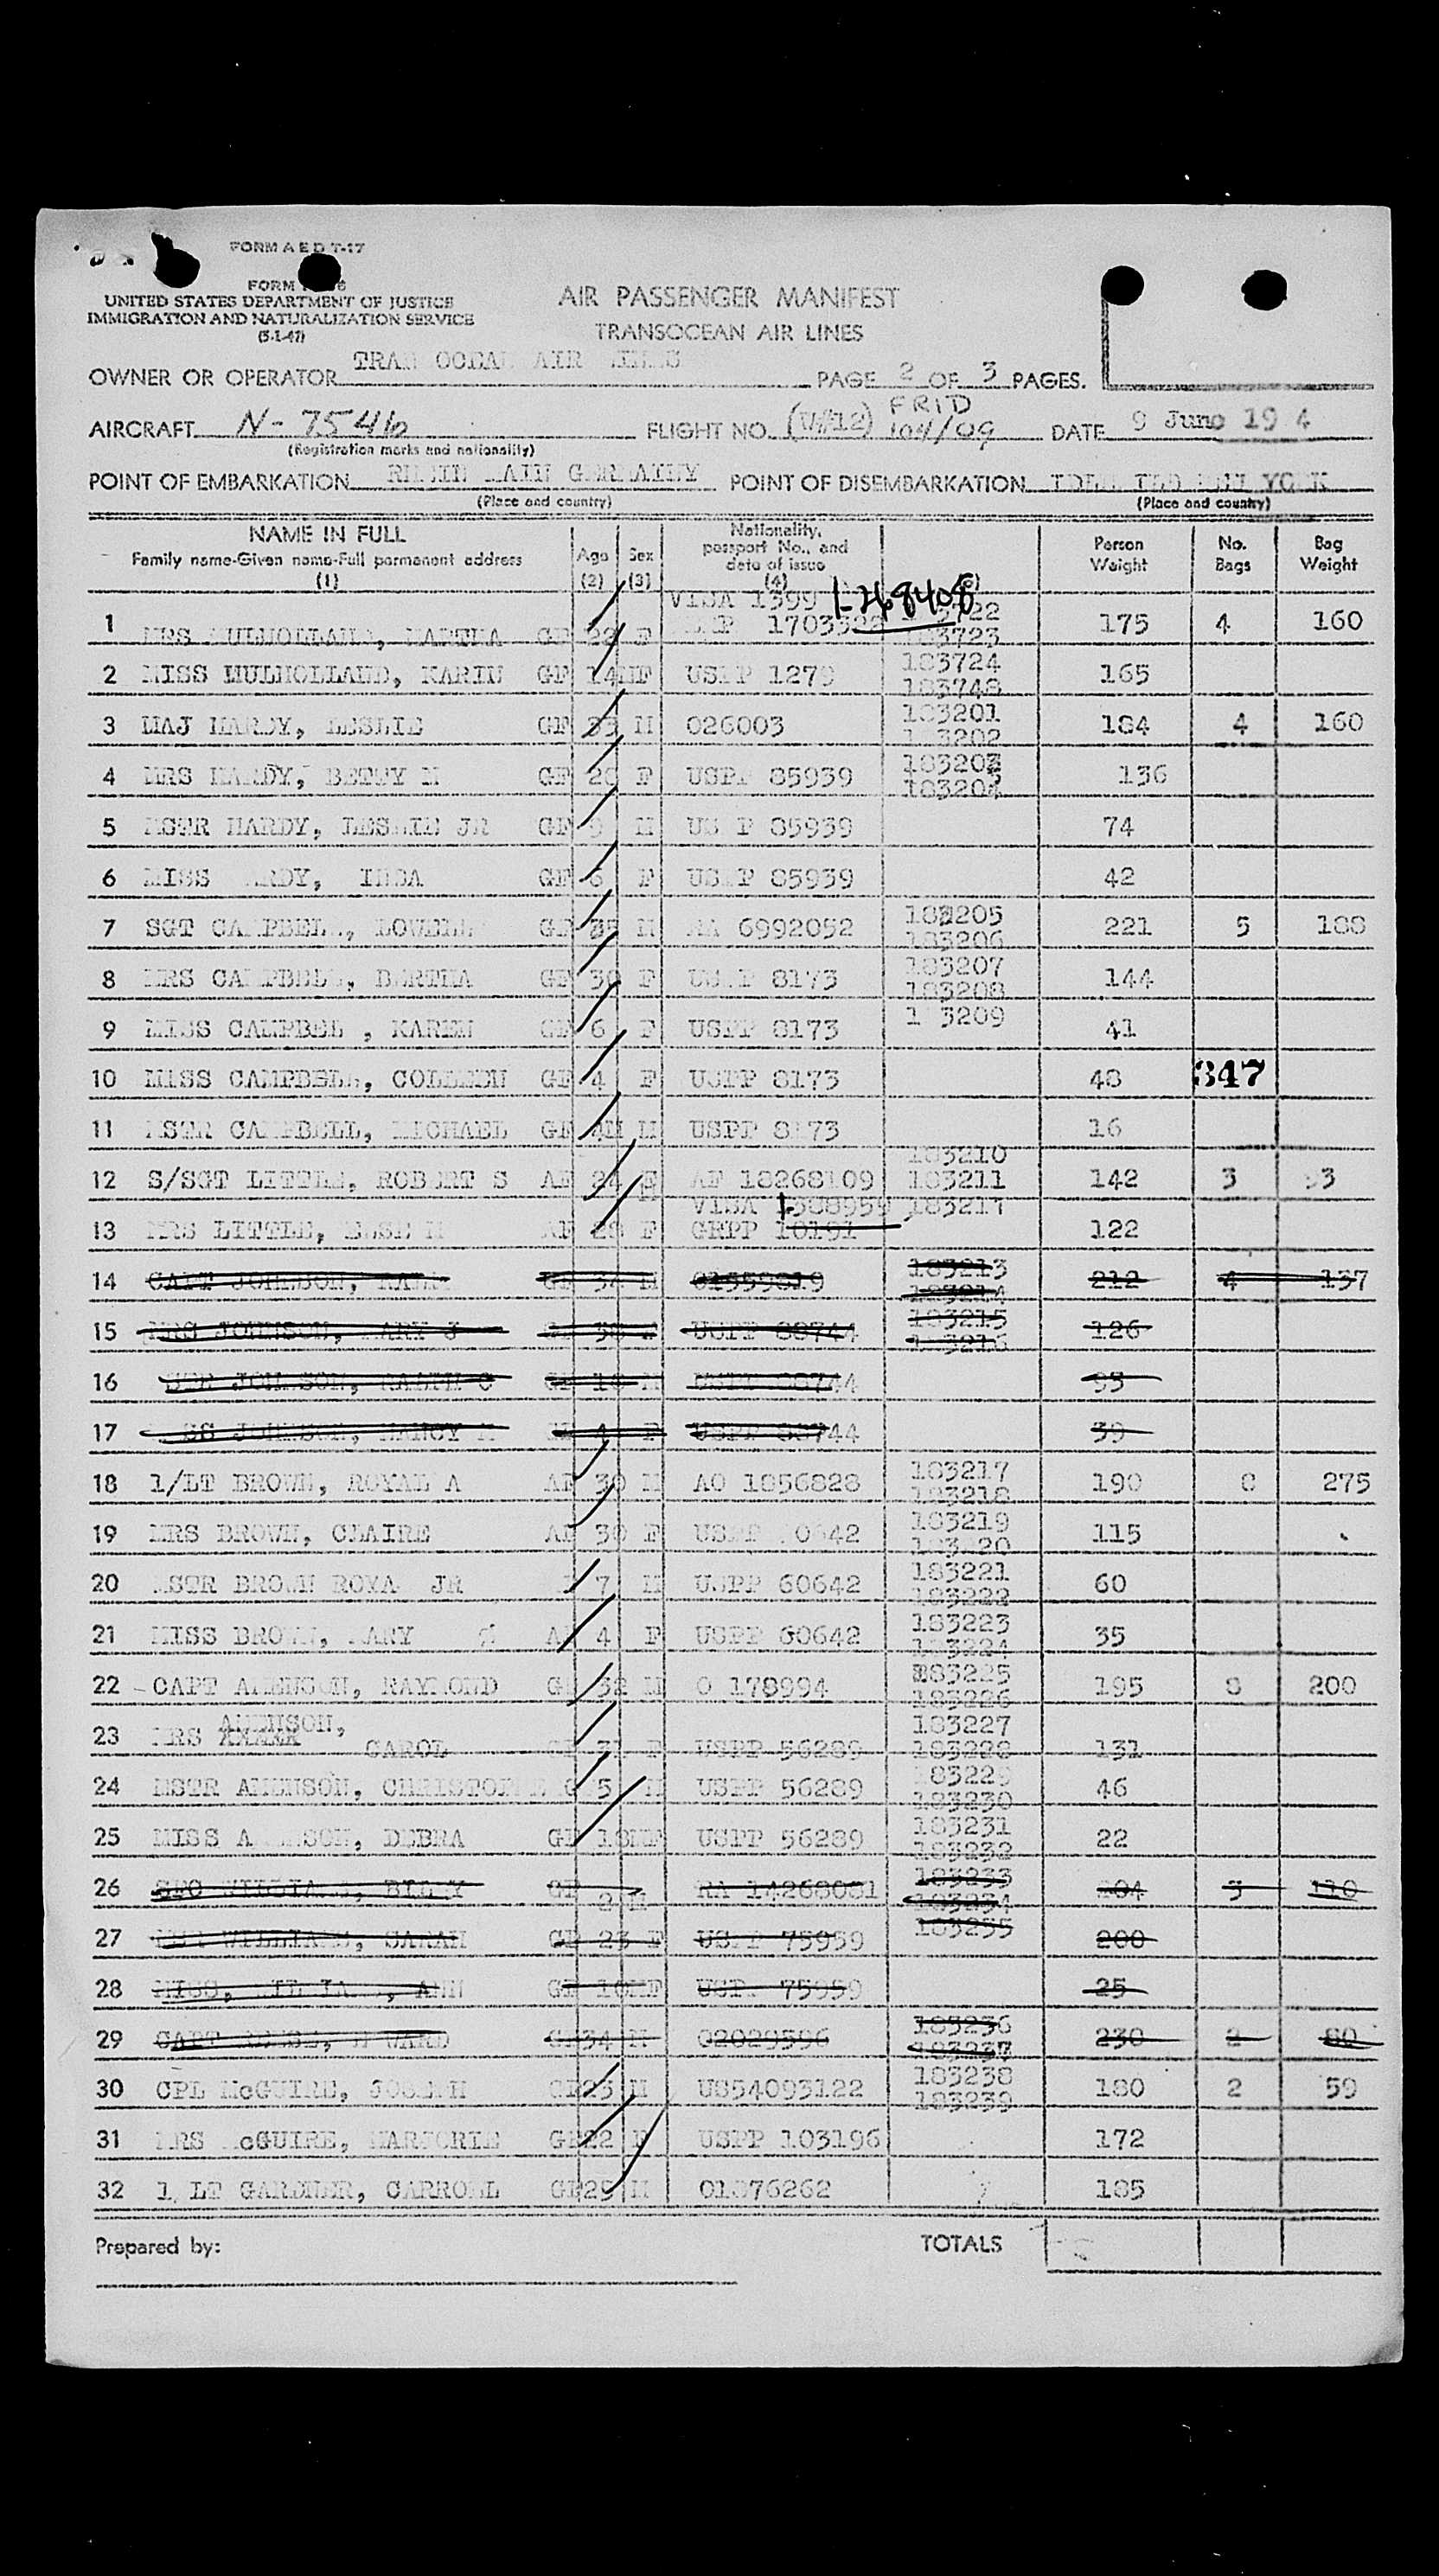 FORM A E D T-17
FORM
UNITED STATES DEPARTMENT OF JUSTICE
IMMIGRATION AND NATURALIZATION SERVICE
(5-1-47)
AIR PASSENGER MANIFEST
TRANSOCEAN AIR LINES
OWNER OR OPERATOR AIR PAGE 2 OF 3 PAGES.
AIRCRAFT N-7546 FLIGHT NO. FRID 104/09 DATE 9 June 19 4
(Registration marks and nationality)
POINT OF EMBARKATION POINT OF DISEMBARKATION YORK
(Place and country) (Place and country)
NAME IN FULL
Family name-Given name-Full permanent address
(1)
Age
(2)
Sex
(3)
Nationality, passport No., and date of issue
(4)
Person Weight
No. Bags
Bag Weight
1 MRS MULHOLLAND, MARTHA GF 22 F VISA 1399 175 4 160
2 MISS MULHOLLAND, KARIN GF 14M F USPP 1279 183724 183748 165
3 MAJ HARDY, LESLIE GF 33 M 026003 183201 183202 184 4 160
4 MRS HARDY, BETSY M GF F USPP 85939 183203 183204 136
5 MSTR HARDY, LESLIE JR GF M US P 85939 74
6 MISS RDY, GF 6 F US P 85939 42
7 SGT CAMPBELL, LOWELL GF 35 M RA 6992052 183205 183206 221 5 188
8 MRS CAMPBELL, BERTHA GF 30 F US P 8173 183207 183208 144
9 MISS CAMPBEL , KAREN GF 6 F USPP 8173 1 3209 41
10 MISS CAMPBELL, COLLEEN GF 4 F USPP 8173 48 347
11 MSTR CAMPBELL, MICHAEL GF M USPP 8173 16
12 S/SGT LITTLE, ROBERT S AF 24 AF 18268109 183210 183211 142 3 93
13 MRS LITTLE, ELSE M AF 28 F VISA GRPP 10191 183217 122
14 CAPT JOHNSON, GF 34 M 01559819 183213 183214 212 4 137
15 MRS JOHNSON, MARY J GF 38 F USPP 88744 183215 183216 126
16 JOHNSON, RALPH C GF M USPP 88744 93
17 JOHNSON, NANCY M GF 4 F USPP 88744 39
18 1/LT BROWN, ROYAL A AF 30 M AO 1856828 183217 183218 190 8 275
19 MRS BROWN, CLAIRE AF 30 F US 0642 183219 115
20 MSTR BROWN ROYA JR 7 M USPP 60642 183221 183222 60
21 MISS BROWN, MARY A 4 F USPP 60642 183223 183224 35
22 CAPT AMENSON, RAYMOND GF 32 M O 178994 183225 183226 195 8 200
23 MRS AMENSON, CAROL GF F USPP 56289 183227 183228 131
24 MSTR AMENSON, G 5 M USPP 56289 183229 183230 46
25 MISS A SON, DEBRA GF 18M F USPP 56289 183231 183232 22
26 WILLIAMS, BILLY GF M RA 14268081 183233 183234 204 110
27 WILLIAMS, SARAH GF 23 F US P 75959 183235 200
28 MISS, ANN GF 10M F USP 75959 25
29 CAPT GF34 M 02029596 183236 183237 230 2 80
30 CPL McGUIRE, JOSEPH GF23 M US54093122 183238 183239 180 2 59
31 MRS McGUIRE, MARJORIE GF22 F USPP 103196 172
32 1 LT GARDNER, CARROLL GF29 M 01876262 185
Prepared by: TOTALS